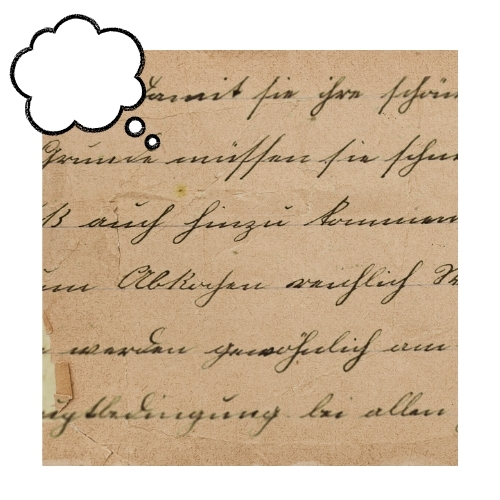 damit sie ihre schön
Grunde müssen sie schne
ß auch hinzu kommen
um Abkochen reichlich
werden gewöhnlich am
uptbedingung bei allen